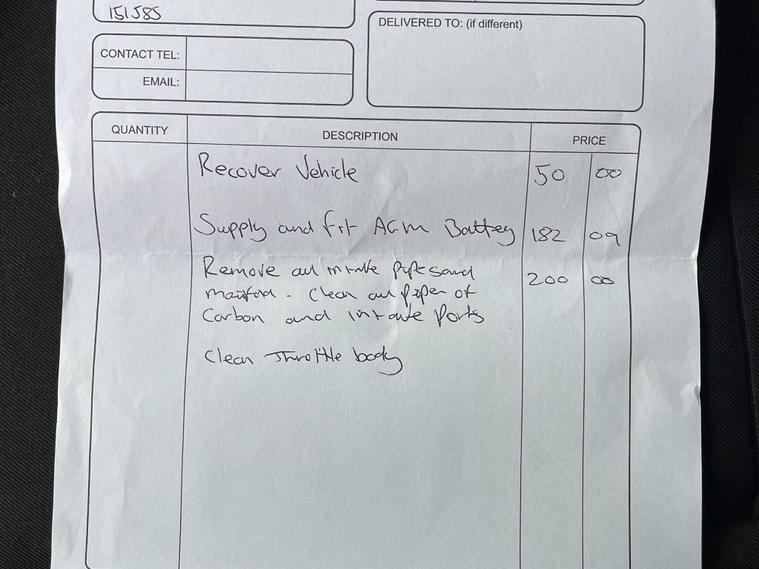 151585
DELIVERED TO: (if different)
CONTACT TEL:
EMAIL:
QUANTITY DESCRIPTION PRICE
Recover Vehicle 50 00
Supply and fit AGM Battery 182 09
Remove all intake pipes and 200 00
manifold. Clean all pipes of
Carbon and intake Ports
Clean Throttle body